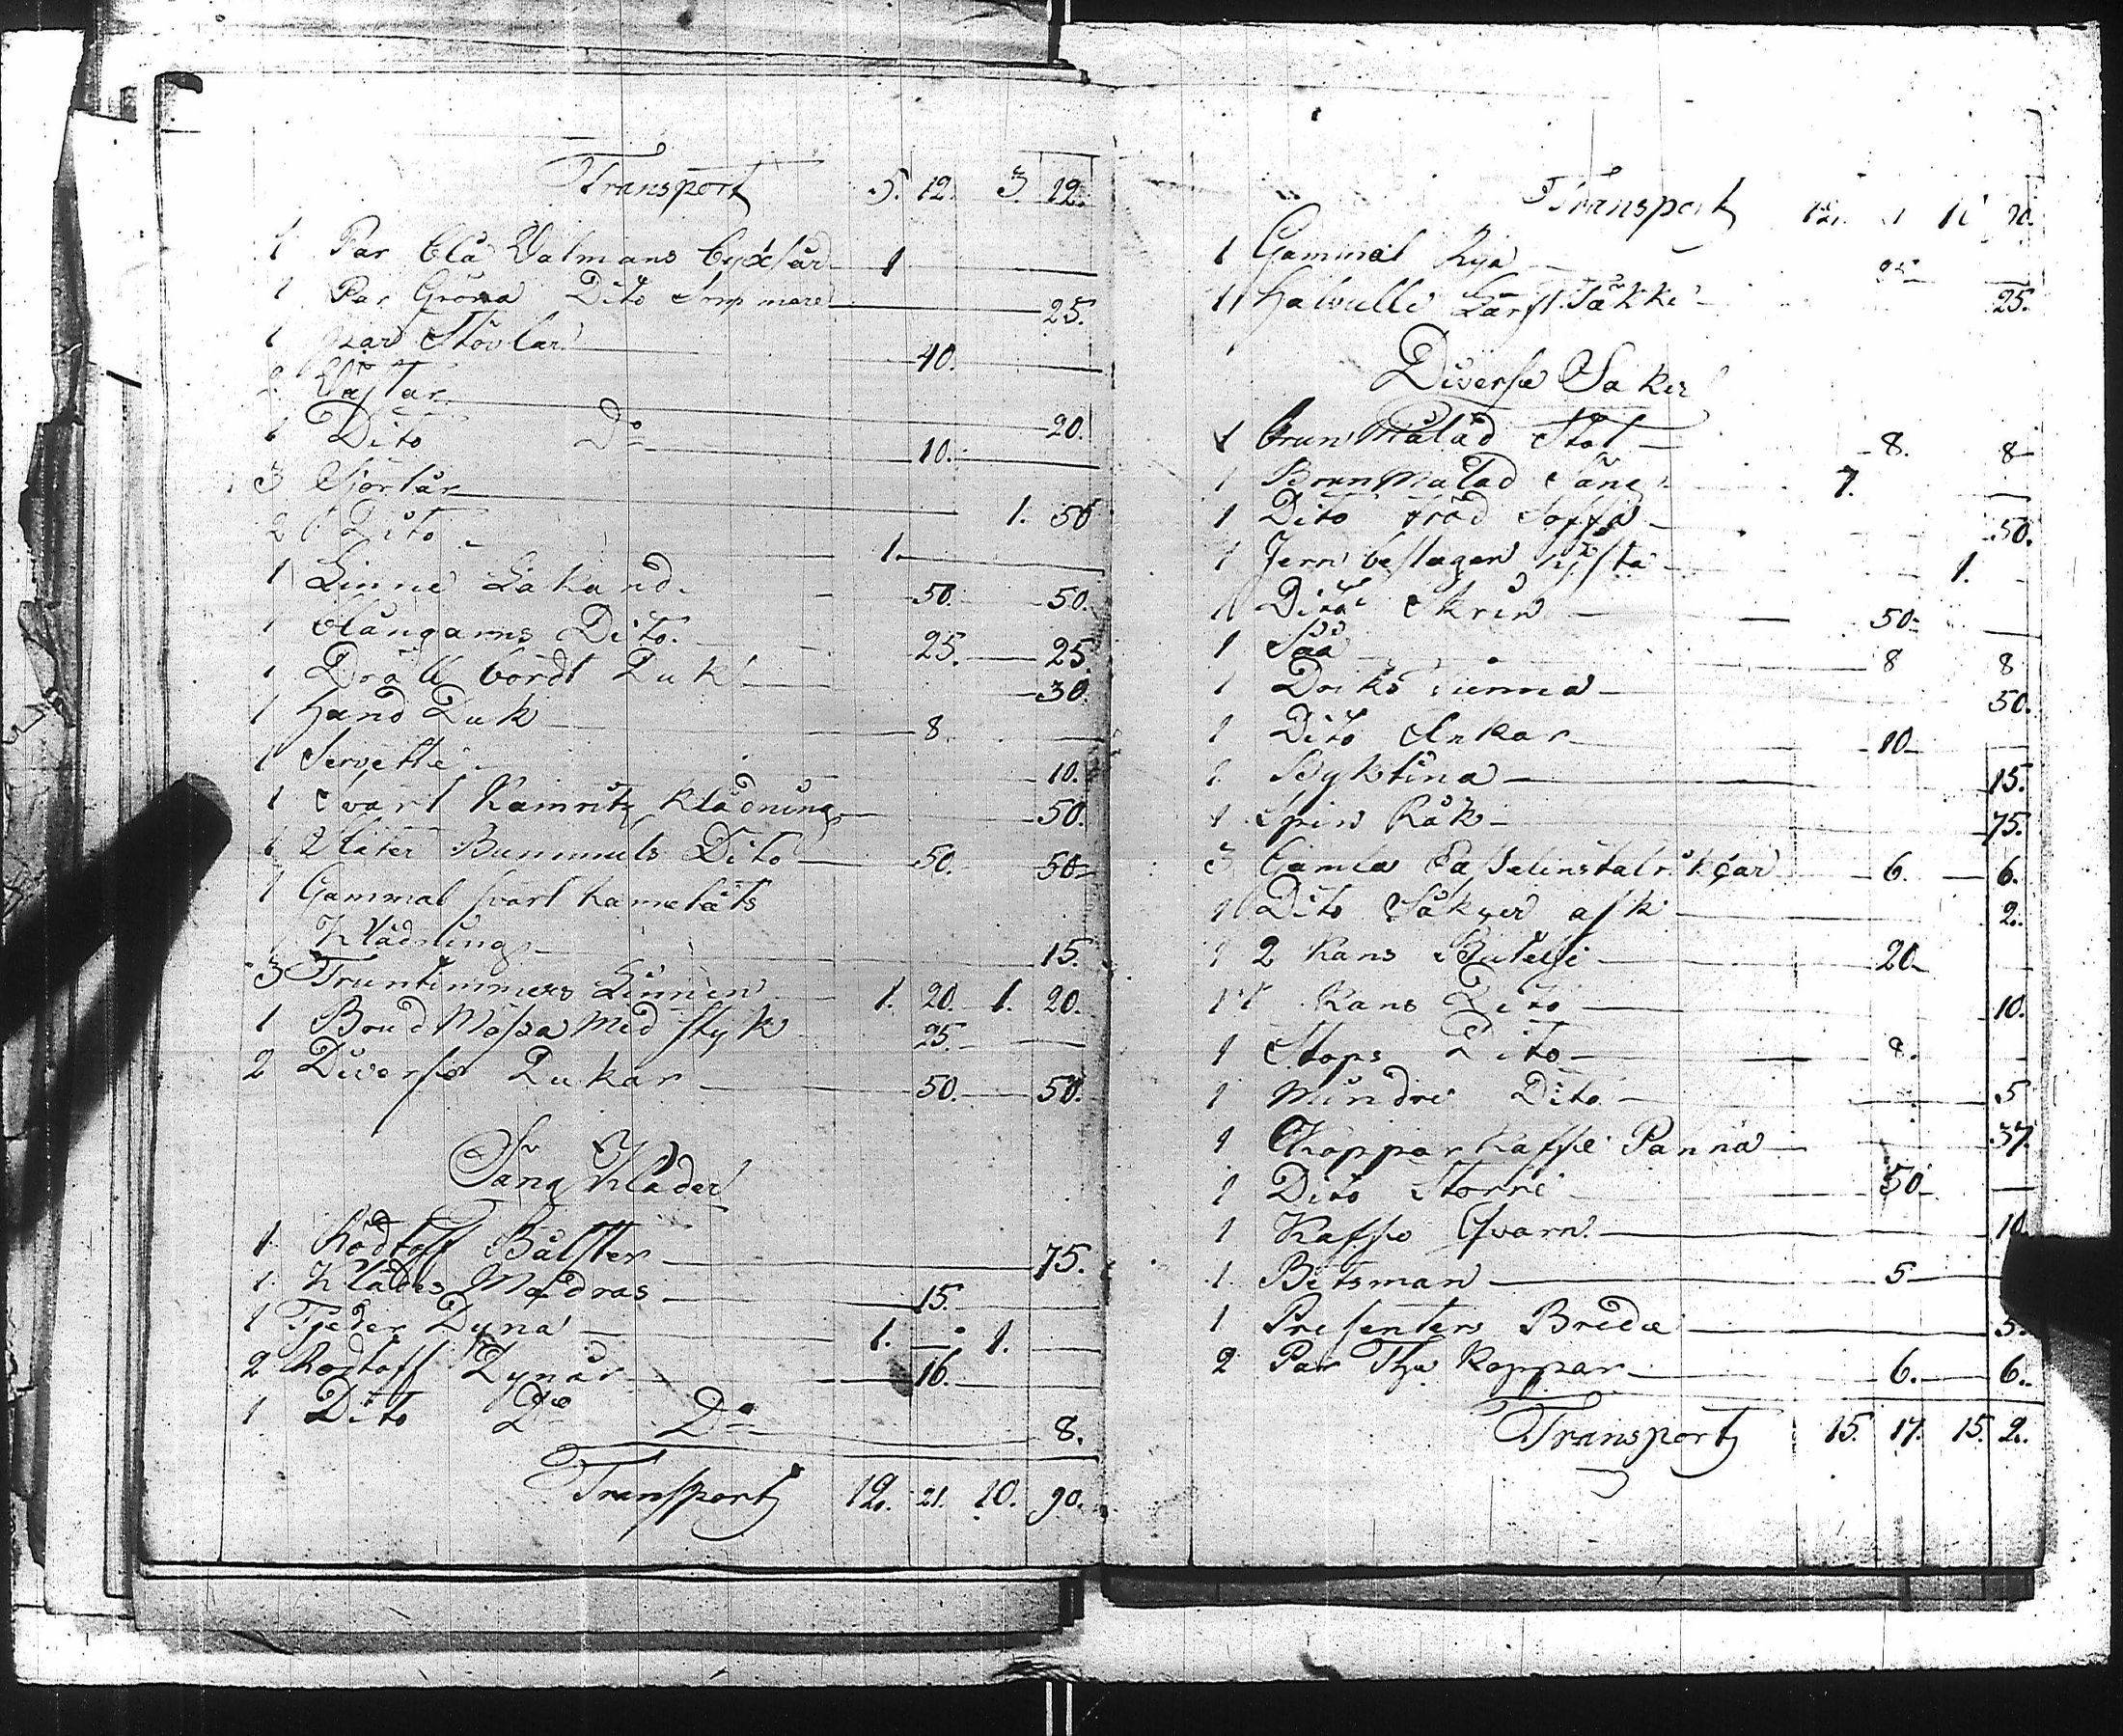 Transport 5. 12. 3. 12.
1 Par blå Valmans byxsår 1
1 Par Gröna Dito Sommare 25.
1 par Stövlar 40.
2 Västar 20.
1 Dito Do 10.
3 Sjörtår 1. 50
2 Dito 1.
1 Linne Lakand. 50. 50.
1 blångarns Dito. 25. 25.
1 Dräll bordt Duk 30.
1 Hand Duk 8.
1 Servette 10.
1 Svart Klädning 50.
1 Bummuls Dito 50. 50
1 Gammal svart kamelåts
Klädning 15.
3 Fruntimmers Linnen 1. 20. 1. 20.
1 Brud Mössa med styk 25.
2 Diverse Dukar 50. 50.
Säng Kläder
1 Rödtoff Bålster 75.
1 Klädes Madras 15.
1 Fjeder Dyna 1. 1.
2 Rodtoff Dynår 16.
1 Dito Do Do 8.
Transport 12. 21. 10. 90.
Transport 12. 21 10 90.
1 Gammal Rya
1 Halvulle Lärft Täkke 25.
Diverse Saker
1 brun Målad Stol 8. 8
1 Brun Målad Säng 1.
1 Dito Soffa 50.
1 Jern beslagen kista 1.
1 Dito Skrin 50.
1 Såå 8 8
1 Driks Tunna 50.
1 Dito Ankar 10
1 Byktina 15.
1 Spin Råk 75.
3 Gamla 6. 6.
1 Dito Såkger ask 2.
1 2 Kans Butelli 20
1 1 Kans Dito 10.
1 Stops Dito 8.
1 Mindre Dito 5
1 Koppar kaffe Panna 37
1 Dito Storre 50
1 Kaffe Qvarn 10
1 Betsman 5
1 Presenters Bredæ 5.
2 Par The Koppar 6. 6.
Transport 15. 17. 15. 2.